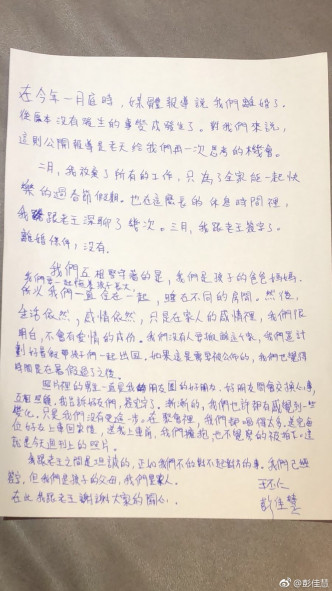 在今年一月底時，媒體報導說我們離婚了。
從原本沒有發生的事變成發生了。對我們來說，
這則公開報導是老天給我們再一次思考的機會。
二月，我放棄了所有的工作，只為了全家能一起快
樂的過春節假期。也在這麼長的休息時間裡，
我跟老王深聊了幾次。三月，我跟老王簽字了。
離婚條件，沒有。
我們互相堅守著的是，我們是孩子的爸爸媽媽，
我們要一起陪著孩子長大。
所以我們一直住在一起，睡在不同的房間。然後，
生活依然，感情依然，只是在家人的感情裡，我們很
明白，不會有愛情的成份。我們沒有人要搬離這個家，我們甚至計
劃好暑假帶孩子們一起出國。如果這是需要被公佈的，我們也覺得
時間是在暑假過了之後。
照片裡的男生一直是我朋友圈的好朋友，好朋友間會交換心事，
互相照顧，我告訴好友們，簽字了。漸漸的，我們也許都有感覺到一些
變化，只是我們沒有更進一步。在聚會裡，我們都喝得太多，是完每
位好友上車回家後，送我上車前，我們擁抱，也不覺得的被拍了，這
就是今週刊上的照片。
我跟老王之間是坦誠的，正如我們不做對不起對方的事。我們已經
簽字，但我們是孩子的父母，我們是家人。
在此我跟老王謝謝大家的關心。
王丕仁
彭佳慧
@彭佳慧